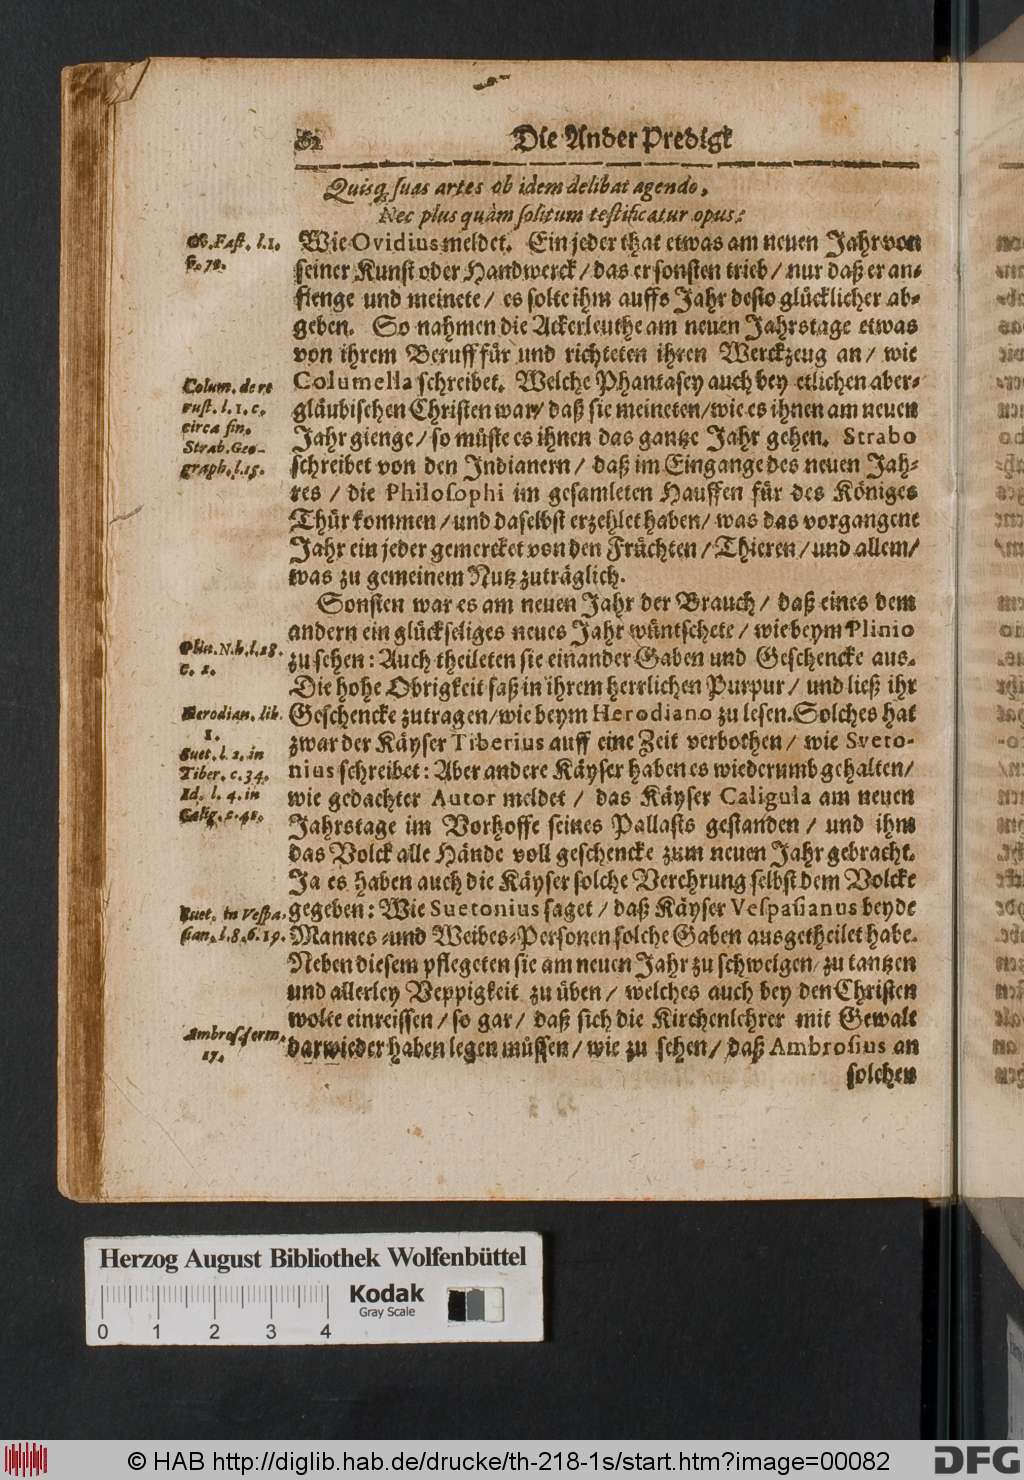 82 Die Ander Predigt
Quisq; suas artes ob idem delibat agendo,
Nec plus quàm solitum testificatur opus:
Ov. Fast. l. 1.
f. 78.
Wie Ovidius meldet. Ein jeder that etwas am neuen Jahr von
seiner Kunst oder Handwerck / das er sonsten trieb / nur daß er an-
fienge und meinete / es solte ihm auffs Jahr desto glücklicher ab-
gehen. So nahmen die Ackerleuthe am neuen Jahrstage etwas
von ihrem Beruff für und richteten ihren Werckzeug an / wie
Colum. de re
rust. l. 1. c.
circa fin.
Strab. Geo-
graph. l. 15.
Columella schreibet. Welche Phantasey auch bey etlichen aber-
gläubischen Christen war / daß sie meineten / wie es ihnen am neuen
Jahr gienge / so müste es ihnen das gantze Jahr gehen. Strabo
schreibet von den Indianern / daß im Eingange des neuen Jah-
res / die Philosophi im gesamleten Hauffen für des Königes
Thür kommen / und daselbst erzehlet haben / was das vorgangene
Jahr ein jeder gemercket von den Früchten / Thieren / und allem /
was zu gemeinem Nutz zuträglich.
Sonsten war es am neuen Jahr der Brauch / daß eines dem
andern ein glückseliges neues Jahr wüntschete / wie beym Plinio
Plin. N. h. l. 28.
c. 2.
zu sehen: Auch theileten sie einander Gaben und Geschencke aus.
Die hohe Obrigkeit saß in ihrem herrlichen Purpur / und ließ ihr
Herodian. lib.
1.
Geschencke zutragen / wie beym Herodiano zu lesen. Solches hat
zwar der Käyser Tiberius auff eine Zeit verbothen / wie Sveto-
Suet. l. 2. in
Tiber. c. 34.
Id. l. 4. in
Calig. c. 42.
nius schreibet: Aber andere Käyser haben es wiederumb gehalten /
wie gedachter Autor meldet / das Käyser Caligula am neuen
Jahrstage im Vorhoffe seines Pallasts gestanden / und ihm
das Volck alle Hände voll geschencke zum neuen Jahr gebracht.
Ja es haben auch die Käyser solche Verehrung selbst dem Volcke
Suet. in Vespa-
sian. l. 8. c. 19.
gegeben: Wie Suetonius saget / daß Käyser Vespasianus beyde
Mannes- und Weibes-Personen solche Gaben ausgetheilet habe.
Neben diesem pflegeten sie am neuen Jahr zu schwelgen / zu tantzen
und allerley Veppigkeit zu üben / welches auch bey den Christen
wolte einreissen / so gar / daß sich die Kirchenlehrer mit Gewalt
Ambros. serm.
17.
darwieder haben legen müssen / wie zu sehen / daß Ambrosius an
solchen
Herzog August Bibliothek Wolfenbüttel
Kodak
Gray Scale
0 1 2 3 4
© HAB http://diglib.hab.de/drucke/th-218-1s/start.htm?image=00082
DFG